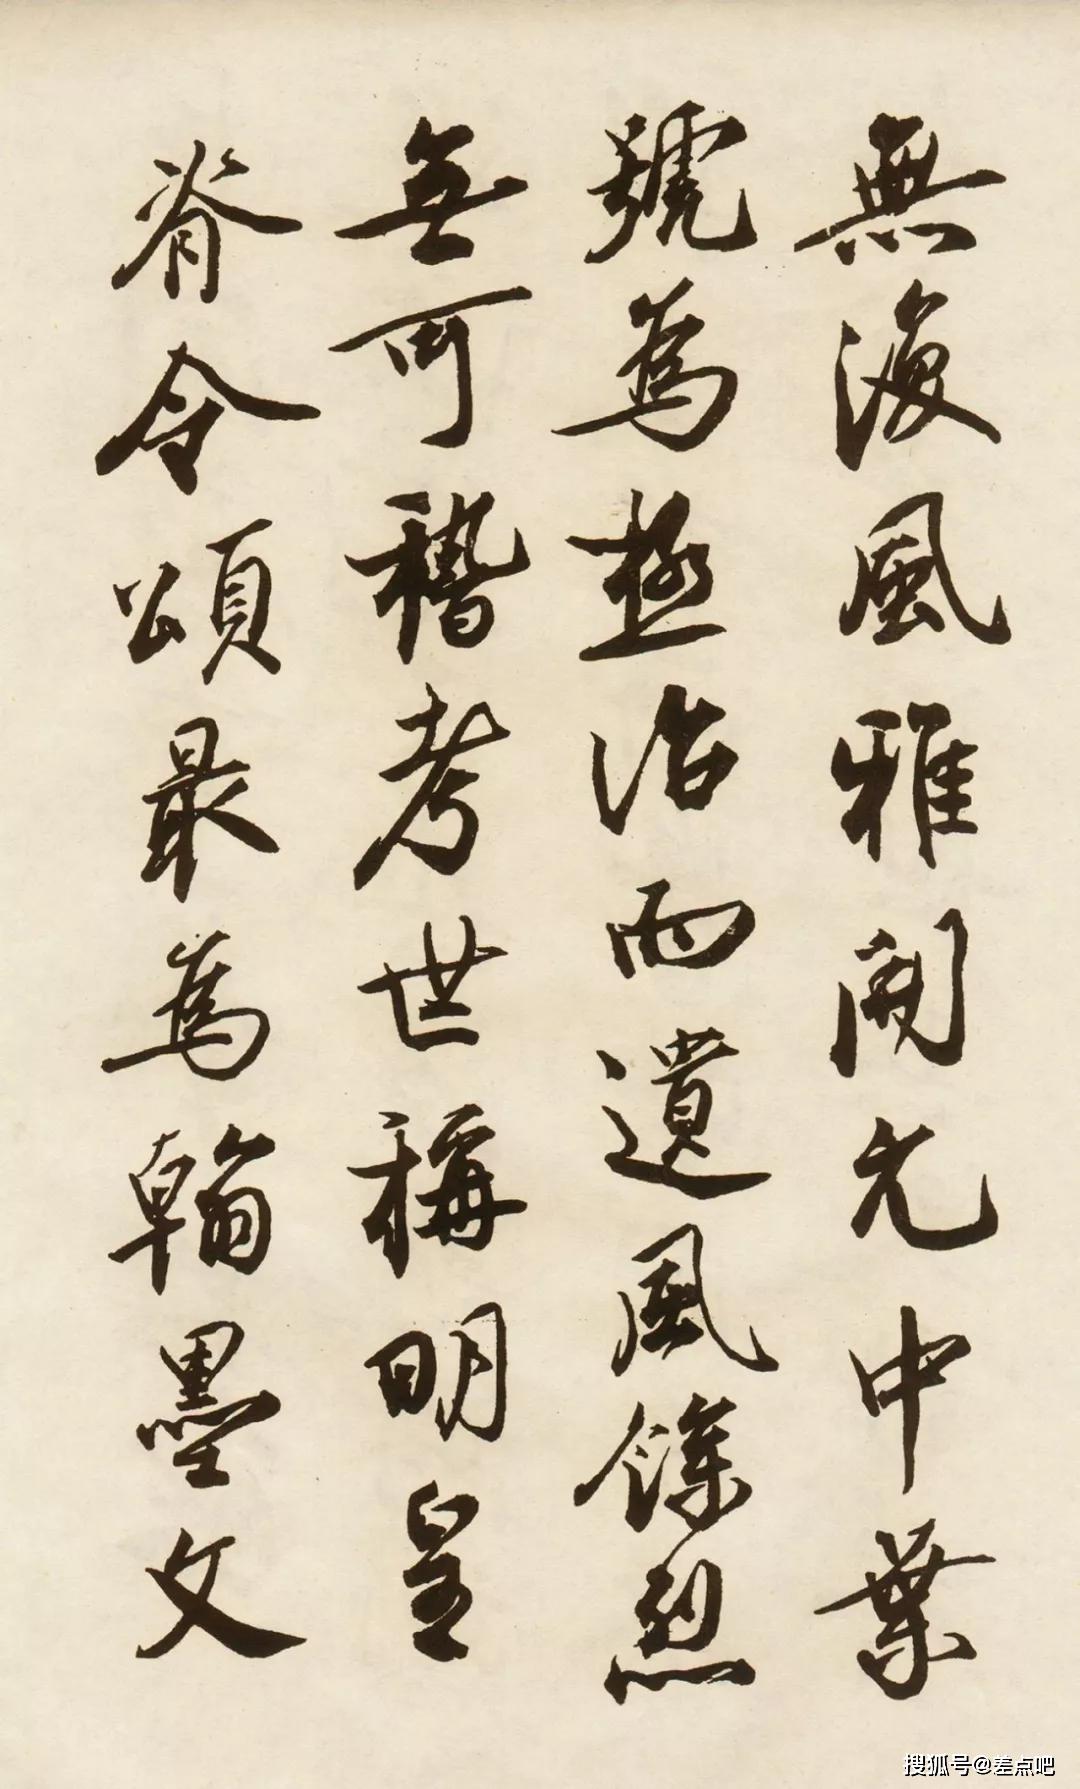 無復風雅開元中葉
號為極治而遺風餘烈
無可稽考世稱明皇
脊令頌最為翰墨文
搜狐号@差点吧